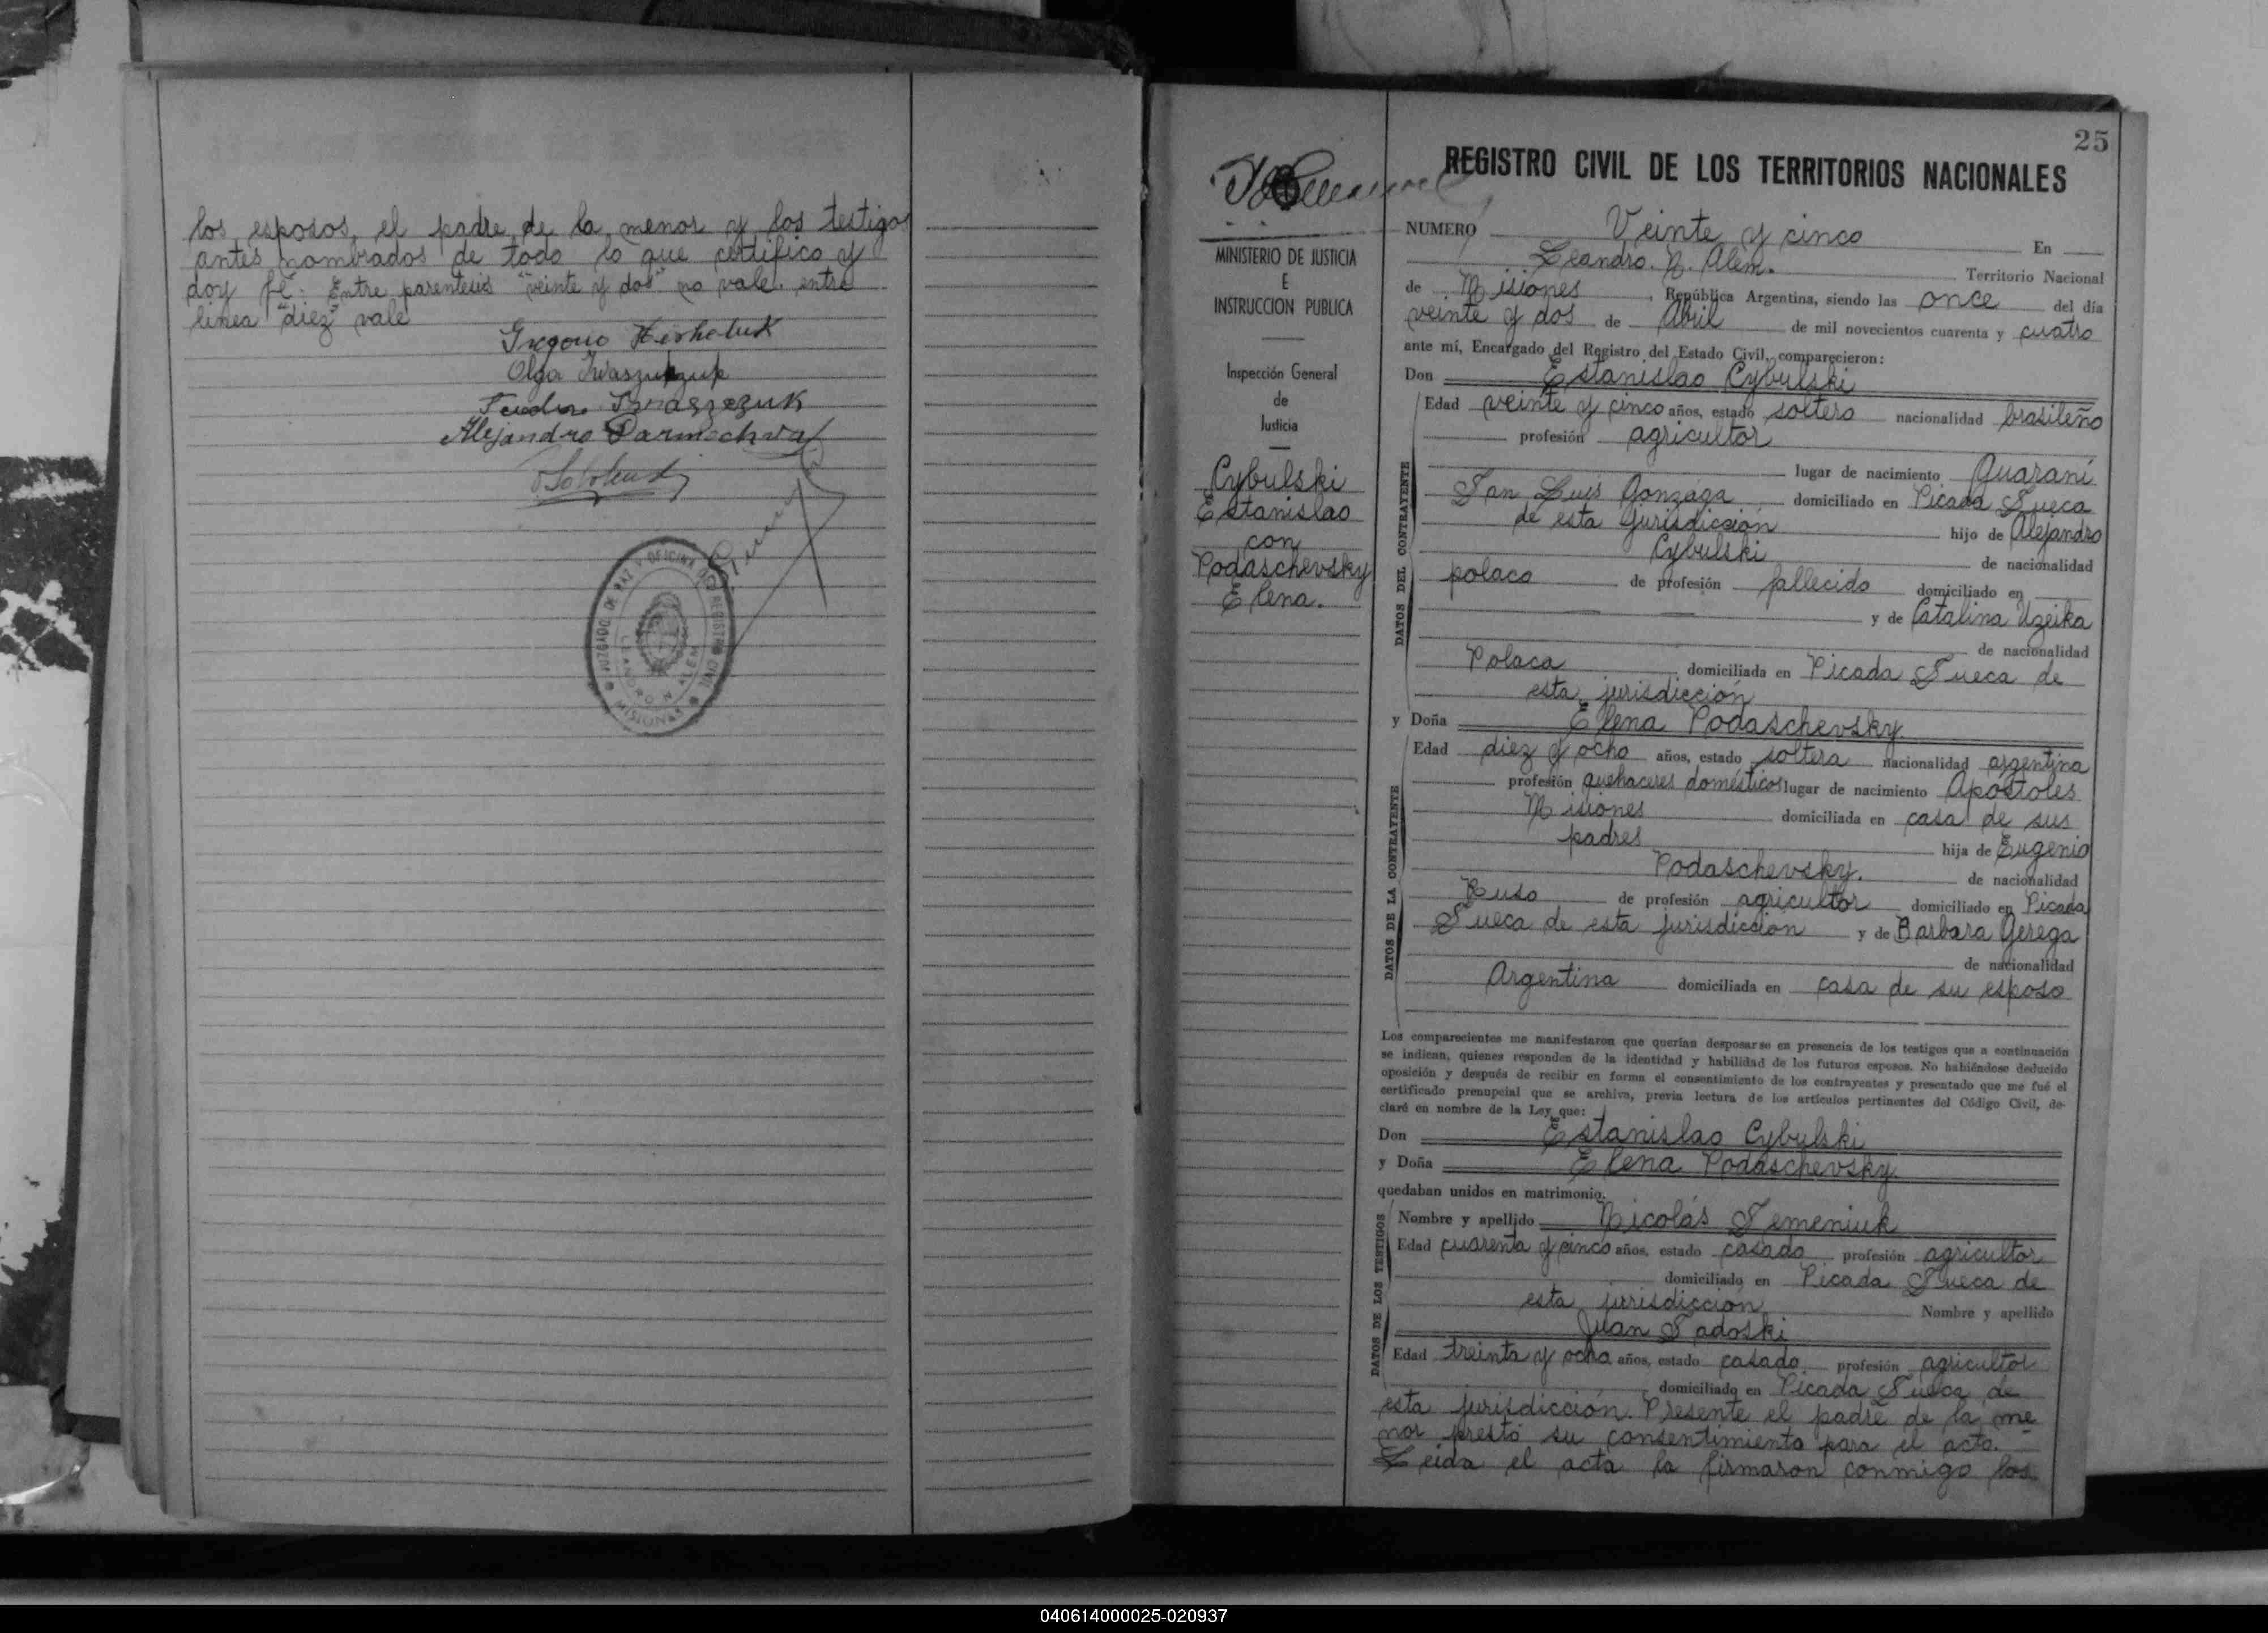 los esposos, el padre de la menor y los testigos
antes nombrados de todo lo que certifico y
doy fé. Entre parentesis "veinte y dos" no vale. entre
linea "diez" vale
Olga Iwaszczuk
Alejandro Parmechwa
JUZGADO DE PAZ Y OFICINA DEL REGISTRO CIVIL
LEANDRO N. ALEM
MISIONES
25
REGISTRO CIVIL DE LOS TERRITORIOS NACIONALES
MINISTERIO DE JUSTICIA
E
INSTRUCCION PUBLICA
Inspección General
de
Justicia
Cybulski
Estanislao
con
Podaschevsky
Elena.
NUMERO Veinte y cinco En
Leandro. N. Alem. Territorio Nacional
de Misiones, República Argentina, siendo las once del día
veinte y dos de Abril de mil novecientos cuarenta y cuatro
ante mí, Encargado del Registro del Estado Civil, comparecieron:
Don Estanislao Cybulski
DATOS DEL CONTRAYENTE
Edad veinte y cinco años, estado soltero nacionalidad brasileño
profesión agricultor
lugar de nacimiento Guaraní
San Luis Gonzaga domiciliado en Picada Sueca
de esta jurisdicción hijo de Alejandro
Cybulski de nacionalidad
polaco de profesión fallecido domiciliado en
y de Catalina Uzeika
de nacionalidad
Polaca domiciliada en Picada Sueca de
esta jurisdicción
y Doña Elena Podaschevsky.
DATOS DE LA CONTRAYENTE
Edad diez y ocho años, estado soltera nacionalidad argentina
profesión quehaceres domésticos lugar de nacimiento Apóstoles
Misiones domiciliada en casa de sus
padres hija de Eugenio
Podaschevsky. de nacionalidad
Ruso de profesión agricultor domiciliado en Picada
Sueca de esta jurisdicción y de Barbara Gerega
de nacionalidad
Argentina domiciliada en casa de su esposo
Los comparecientes me manifestaron que querían desposarse en presencia de los testigos que a continuación
se indican, quienes responden de la identidad y habilidad de los futuros esposos. No habiéndose deducido
oposición y después de recibir en forma el consentimiento de los contrayentes y presentado que me fué el
certificado prenupcial que se archiva, previa lectura de los artículos pertinentes del Código Civil, de-
claré en nombre de la Ley que:
Don Estanislao Cybulski
y Doña Elena Podaschevsky.
quedaban unidos en matrimonio.
DATOS DE LOS TESTIGOS
Nombre y apellido Nicolás Semeniuk
Edad cuarenta y cinco años, estado casado profesión agricultor
domiciliado en Picada Sueca de
esta jurisdicción Nombre y apellido
Juan Sadoski
Edad treinta y ocho años, estado casado profesión agricultor
domiciliado en Picada Sueca de
esta jurisdicción. Presente el padre de la me
nor prestó su consentimiento para el acto.
Leida el acta la firmaron conmigo los
040614000025-020937